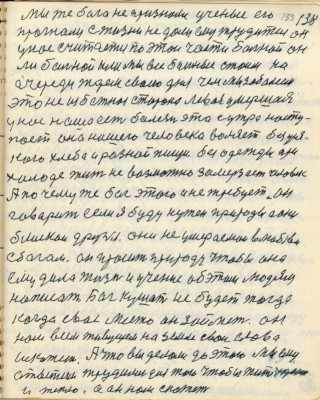 мы же бога не признали ученые его 133 138
прогнали с жизни не дали ему трудится он
у нас считается по этой части больной он
ли больной или мы все больные стоим на
очереди ждем свово дня чем мы заболеем
это не известно сторона левая умершая
у нас на месте болезь эта с утра насту-
пает она нашего человека валяет без вся-
кого хлеба и разной пищи без одежды он
холоде жить не возможно замерзает человек
А почему же бог этого и не требует он
говорит если я буду нужен природи а они
близкаи друзья. они не умераемои в любви
с богом. он просит природу чтобы она
ему дала жизь и учение об этом людям
написать Бог кушат не будет тогда
когда свое место он займет. он
нам всем живущим на земле свои слова
скажет. А что вы делали до этого мы ему
ответим трудились для того чтобы жить
и тепло. а он нам скажет